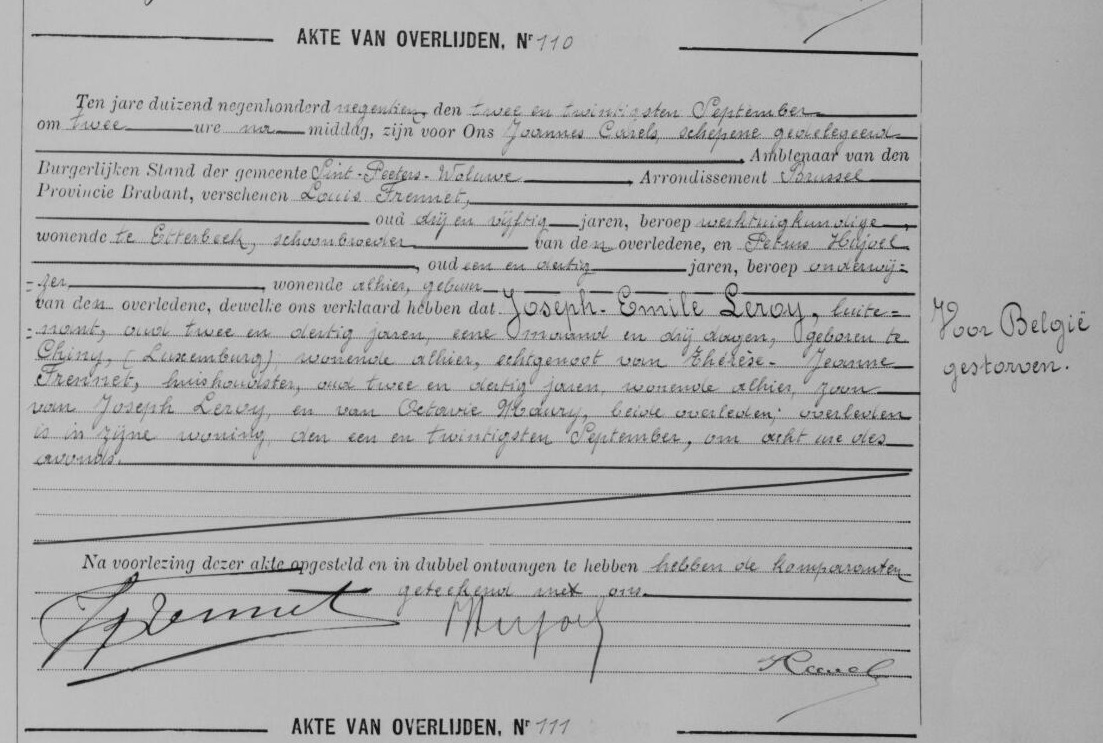 AKTE VAN OVERLIJDEN, Nr 110
Ten jare duizend negenhonderd negentien, den twee en twintigsten September
om twee ure na middag, zijn voor Ons Joannes Carels, schepene gedelegeerd
Ambtenaar van den
Burgerlijken Stand der gemeente Sint-Peeters-Woluwe Arrondissement Brussel
Provincie Brabant, verschenen Louis Frennet,
oud drij en vijftig jaren, beroep werktuigkundige,
wonende te Etterbeek, schoonbroeder van den overledene, en Petrus Hujoel
, oud een en dertig jaren, beroep onderwij=
=zer, wonende alhier, gebuur
van den overledene, dewelke ons verklaard hebben dat Joseph-Emile Leroy, luite=
=nant, oud twee en dertig jaren, eene maand en drij dagen, geboren te
Chiny, (Luxemburg) wonende alhier, echtgenoot van Thérèse-Jeanne
Frennet, huishoudster, oud twee en dertig jaren, wonende alhier, zoon
van Joseph Leroy, en van Octavie Maury, beide overleden; overleden
is in zijne woning, den een en twintigsten September, om acht ure des
avonds.
Voor België
gestorven.
Na voorlezing dezer akte opgesteld en in dubbel ontvangen te hebben hebben de komparanten
geteekend met ons.
Frennet Hujoel
Carels
AKTE VAN OVERLIJDEN, Nr 111